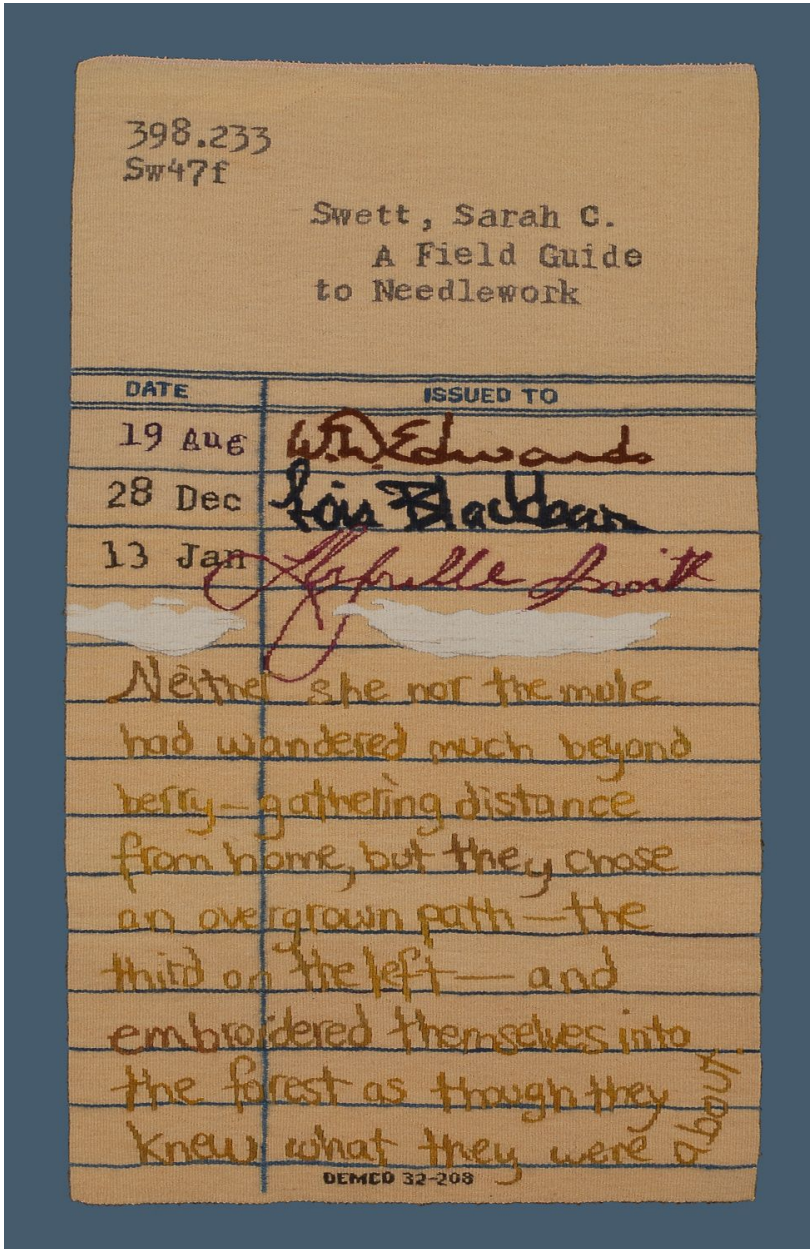 398.233
Sw47f
Swett, Sarah C.
A Field Guide
to Needlework
DATE ISSUED TO
19 Aug W.W. Edwards
28 Dec Lois Blackburn
13 Jan Smith
Neither she nor the mule
had wandered much beyond
berry-gathering distance
from home, but they chose
an overgrown path — the
third on the left — and
embroidered themselves into
the forest as though they
knew what they were about.
DEMCO 32-208